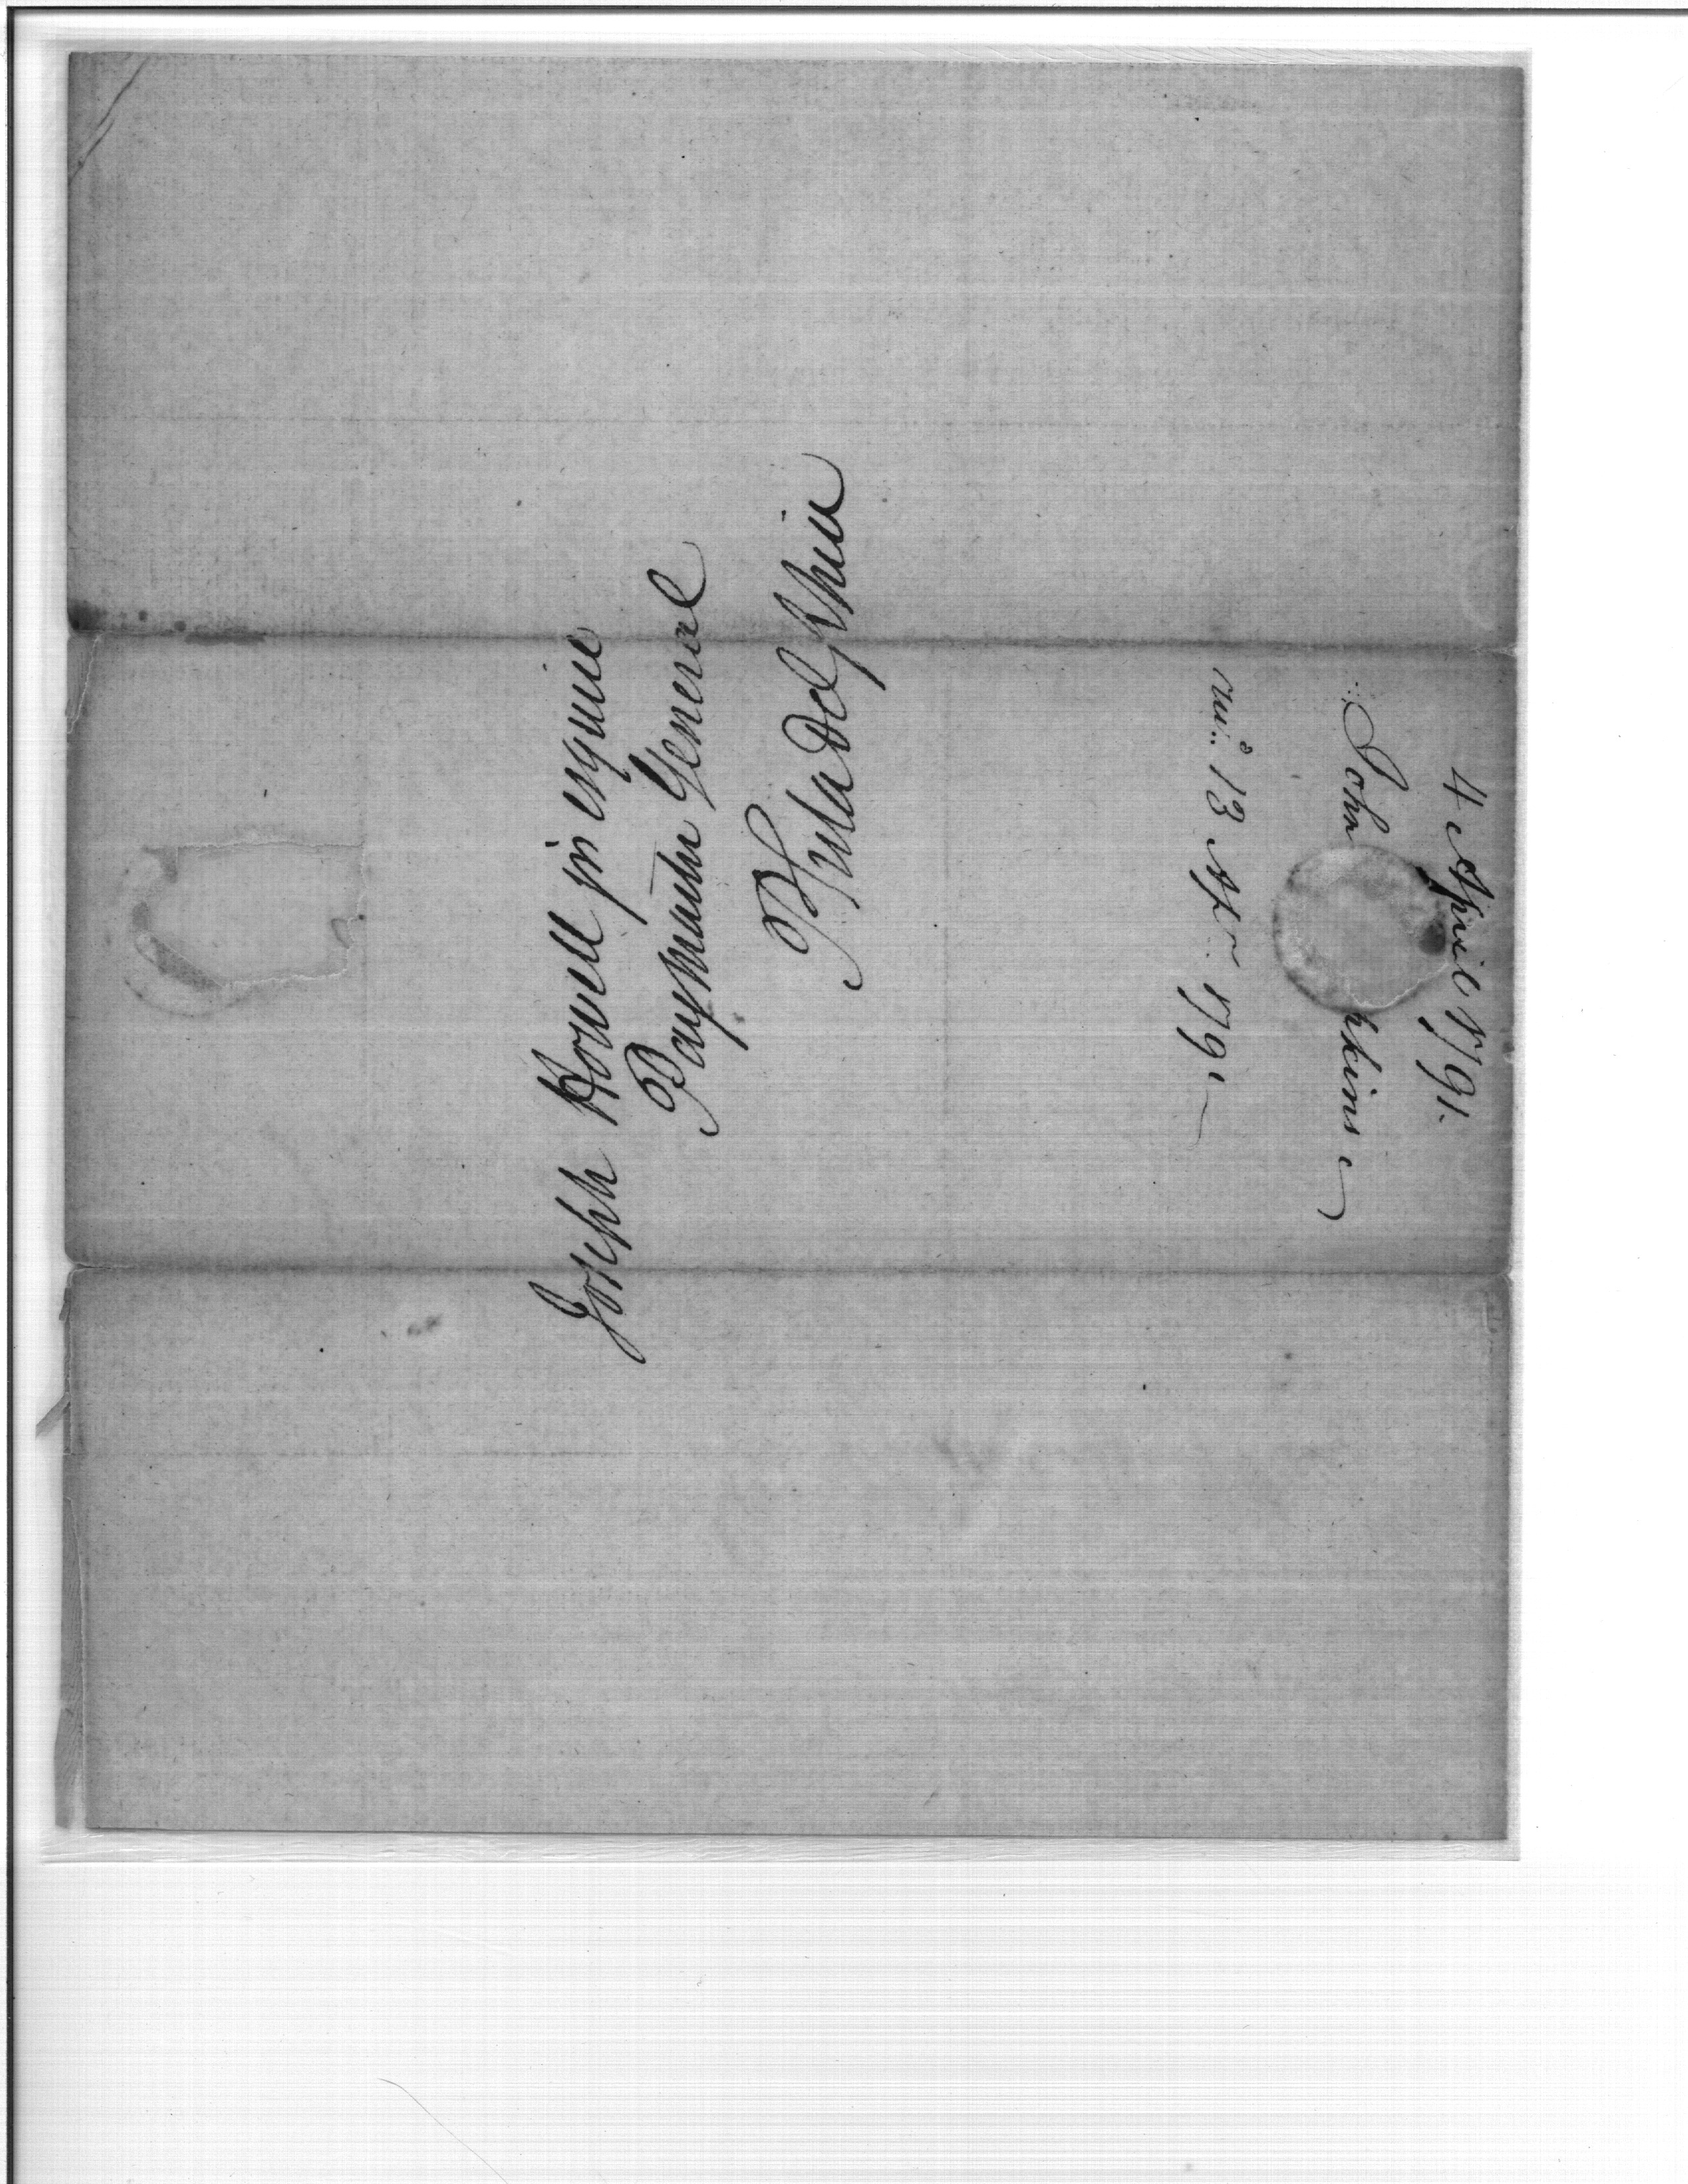 Joseph Howell jr esquire
Paymaster General
Philadelphia
4 April 1791.
John
13 Apr. 1791